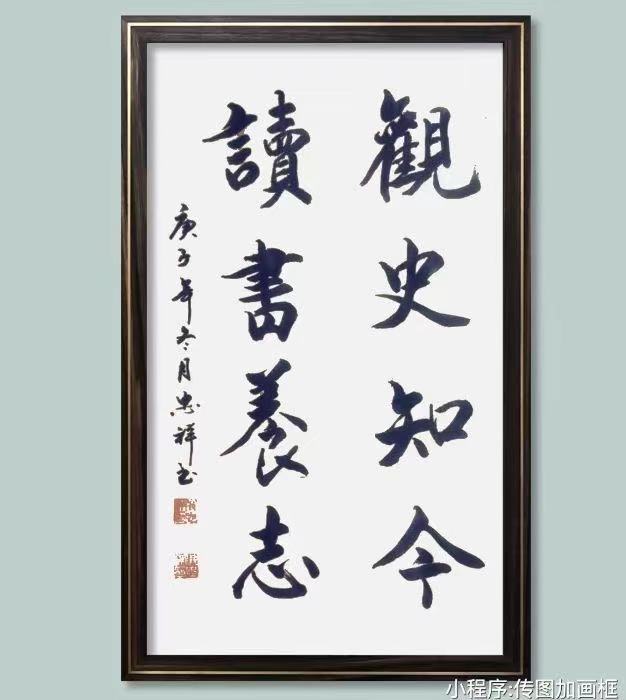 觀史知今
讀書養志
庚子年冬月忠祥书
小程序:传图加画框